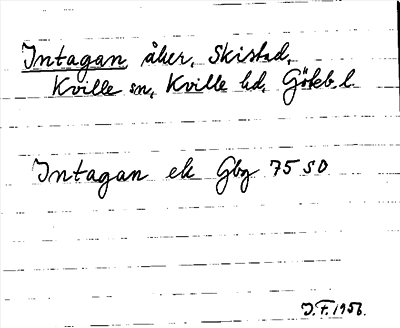 Intagan, åker, Skistad,
Kville sn, Kville hd, Göteb. l.
Intagan ek Gbg 75 SO
J.F. 1956.